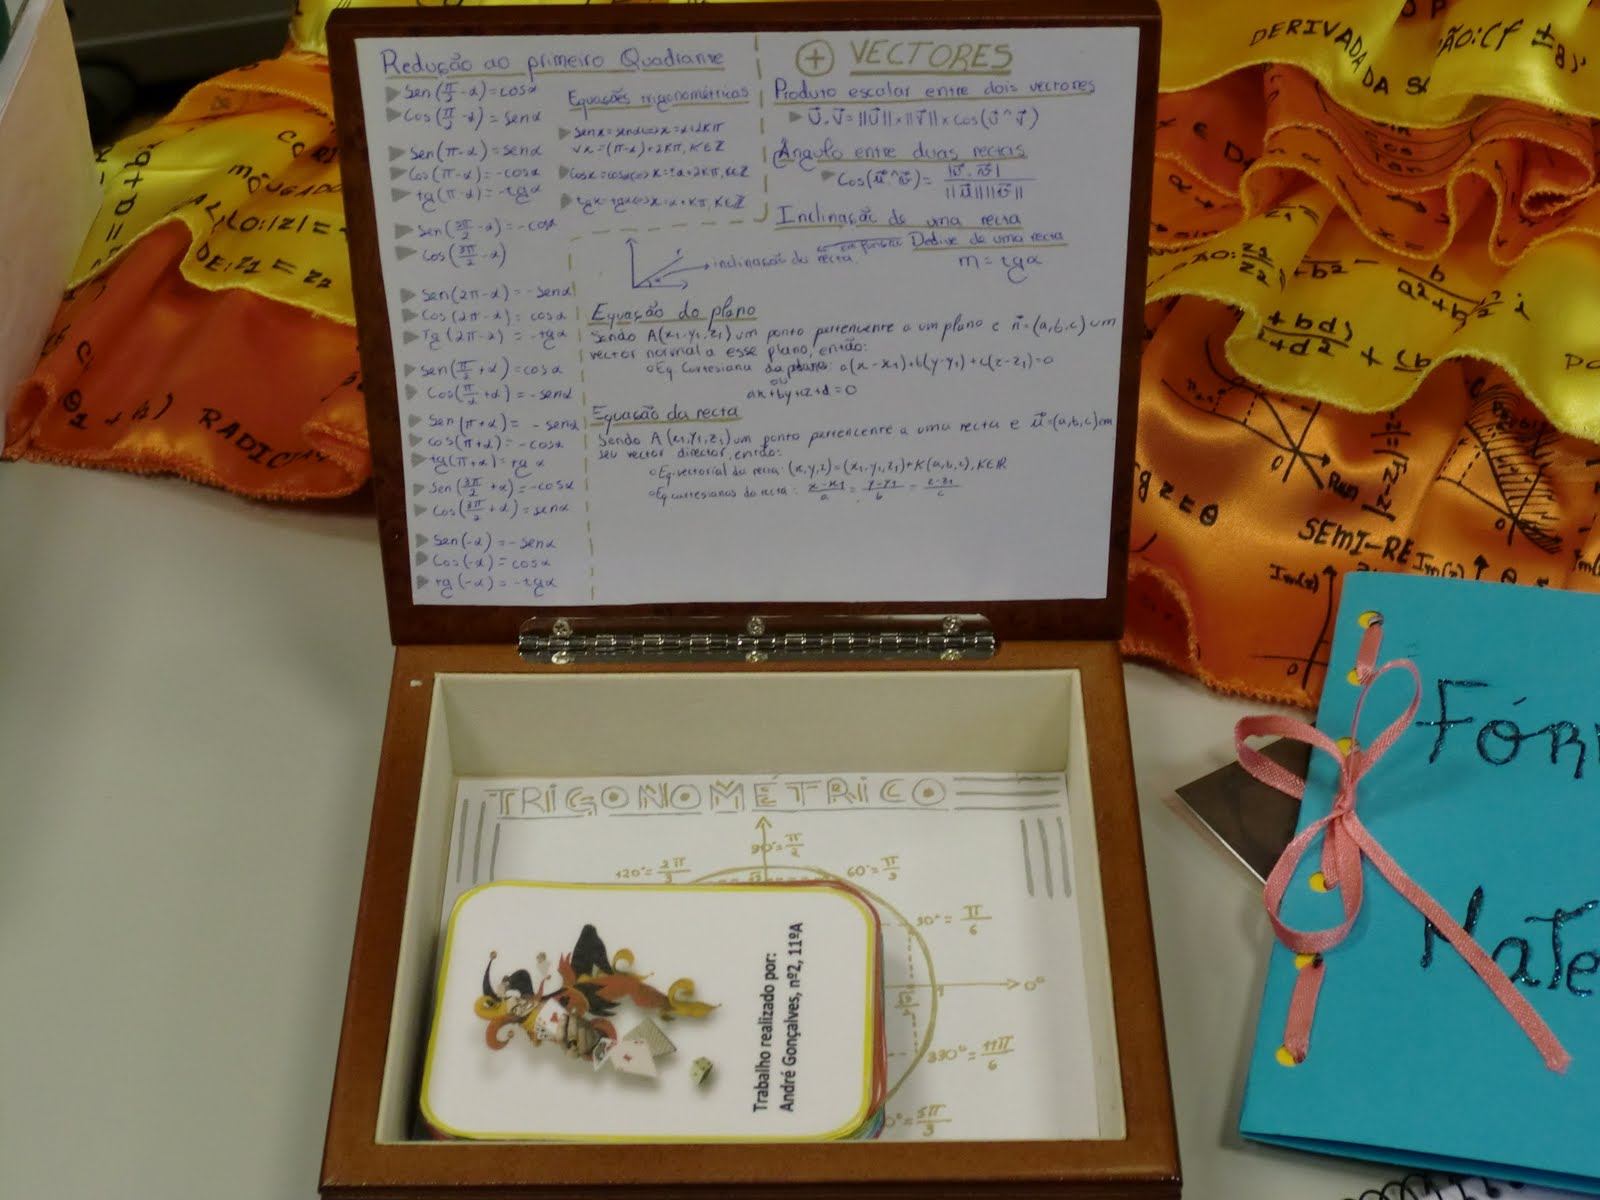 Redução ao primeiro Quadrante
Sen(π/2 - α) = cosα
Cos(π/2 - α) = senα
Sen(π-α) = senα
Cos(π-α) = -cosα
tg(π-α) = -tgα
Sen(3π/2 - α) = -cosα
Cos(3π/2 - α)
Sen(2π-α) = -senα
Cos(2π-α) = cosα
Tg(2π-α) = -tgα
Sen(π/2 + α) = cosα
Cos(π/2 + α) = -senα
Sen(π+α) = -senα
cos(π+α) = -cosα
tg(π+α) = tgα
Sen(3π/2 + α) = -cosα
Cos(3π/2 + α) = senα
Sen(-α) = -senα
Cos(-α) = cosα
tg(-α) = -tgα
Equações trigonométricas
senx = senα <=> x = α+2Kπ
∨x = (π-α)+2Kπ, K∈Z
Cosx = cosα <=> x = ±α+2Kπ, K∈Z
tgx = tgα <=> x = α+Kπ, K∈Z
+ VECTORES
Produto escalar entre dois vectores
U⃗.V⃗ = ||U⃗||×||V⃗||×Cos(U⃗^V⃗)
Ângulo entre duas rectas
Cos(u⃗^v⃗) = |u⃗.v⃗| / ||u⃗|| ||v⃗||
Inclinação de uma recta
r
α
inclinação da recta
Declive de uma recta
m = tgα
Equação do plano
Sendo A(x1,y1,z1) um ponto pertencente a um plano e n⃗=(a,b,c) um
vector normal a esse plano, então:
Eq. Cartesiana do plano: a(x-x1)+b(y-y1)+c(z-z1)=0
ou
ax+by+cz+d=0
Equação da recta
Sendo A(x1,y1,z1) um ponto pertencente a uma recta e u⃗=(a,b,c) um
seu vector director, então:
Eq. vectorial da recta: (x,y,z) = (x1,y1,z1)+K(a,b,c), K∈IR
Eq cartesianas da recta: x-x1/a = y-y1/b = z-z1/c
TRIGONOMÉTRICO
90°=π/2
120°=2π/3
60°=π/3
30°=π/6
0°
330°=11π/6
0°=5π/3
Trabalho realizado por:
André Gonçalves, nº2, 11ºA
Fór
Mate
DERIVADA DA S
ÃO:(f ± g)'
RADIC
SEMI-RE
Im(z)
Im(z)
g z = θ
DE: z1 = z2